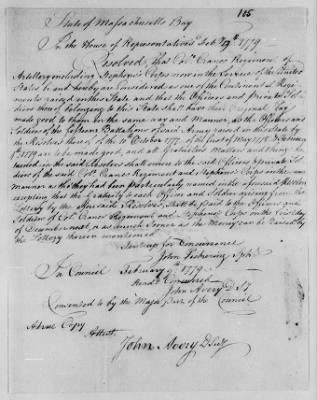 105
State of Massachusetts Bay
In the House of Representatives Feb 1779
Resolved, That Colo. Cranes Regiment of
Artillery including Stephens's Corps now in the Service of the United
States be and hereby are considered as one of the Continental Regi-
ments raised in this State and that the Officers and private Sol-
diers thereof belonging to this State shall have their Original Pay
made good to them in the same way and Manner, as the Officers and
Soldiers of the fifteen Battalions of said Army raised in this State by
the Resolves thereof of the 10th October 1777, of first of May 1778 & February
1st 1779 are to be made good, and all Gratuities Matter and thing con-
tained in the said Resolves shall enure to the said Officers & private Sol-
diers of the said Colo. Cranes Regiment and Stephens's Corps in the same
manner as tho they had been particularly named in the aforesaid Resolves
excepting that the Gratuity to each Officer and Soldier arising from the
Lottery by the aforesaid Resolves shall be paid to the Officers and
Soldiers of Colo. Cranes Regiment and Stephens's Corps on the first day
of December next, or as much sooner as the Money can be raised by
the Lottery therein mentioned
Sent up for Concurrence
John Pickering Spkr.
In Council February 9th 1779
Read & Concurred
John Avery D Sy
Consented to by the Major Part of the Council
A true Copy
Attest
John Avery D Secy